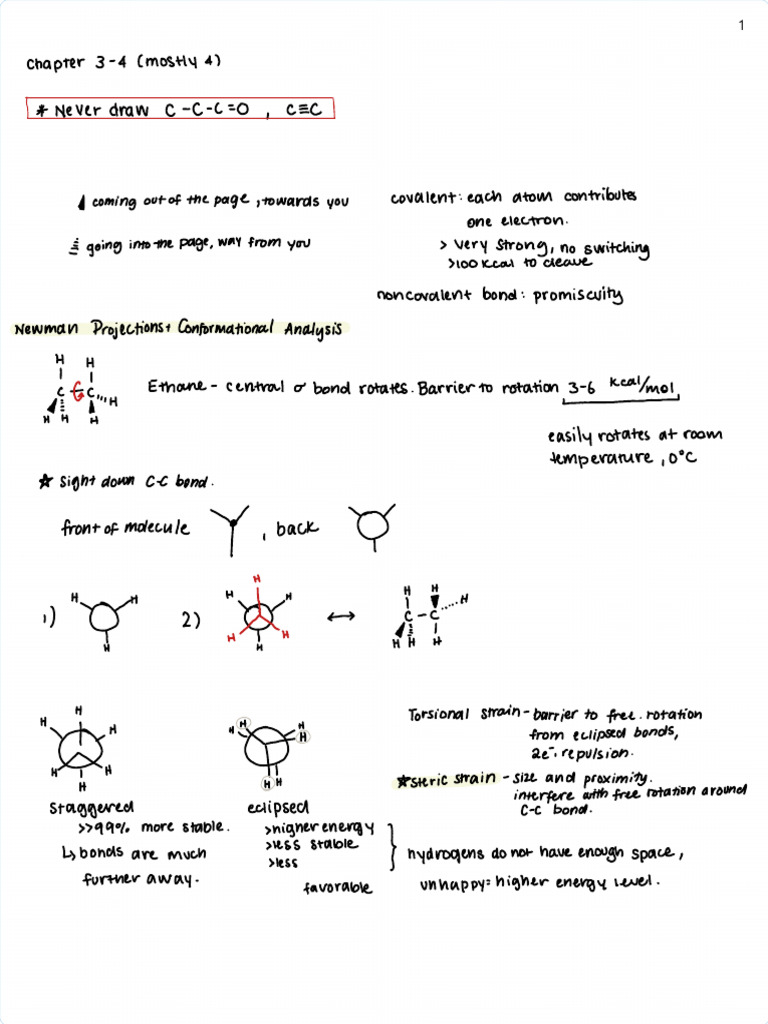 1
Chapter 3-4 (mostly 4)
* Never draw C-C-C=O , C≡C
coming out of the page, towards you
going into the page, way from you
covalent: each atom contributes
one electron.
> very strong, no switching
>100 kcal to cleave
noncovalent bond: promiscuity
Newman Projections + Conformational Analysis
H H
C C H
H H H
Ethane - central σ bond rotates. Barrier to rotation 3-6 kcal/mol
easily rotates at room
temperature, 0°C
☆ Sight down C-C bond.
front of molecule , back
1) H H H
2) H H H H H H
↔
H H H
C-C
H H H
H H H H H H
H H H H H H
Staggered
>>99% more stable.
↳ bonds are much
further away.
eclipsed
>higher energy
>less stable
>less
favorable
Torsional strain - barrier to free. rotation
from eclipsed bonds,
2e⁻. repulsion.
☆Steric strain - size and proximity.
interfere with free rotation around
C-C bond.
hydrogens do not have enough space,
unhappy = higher energy level.